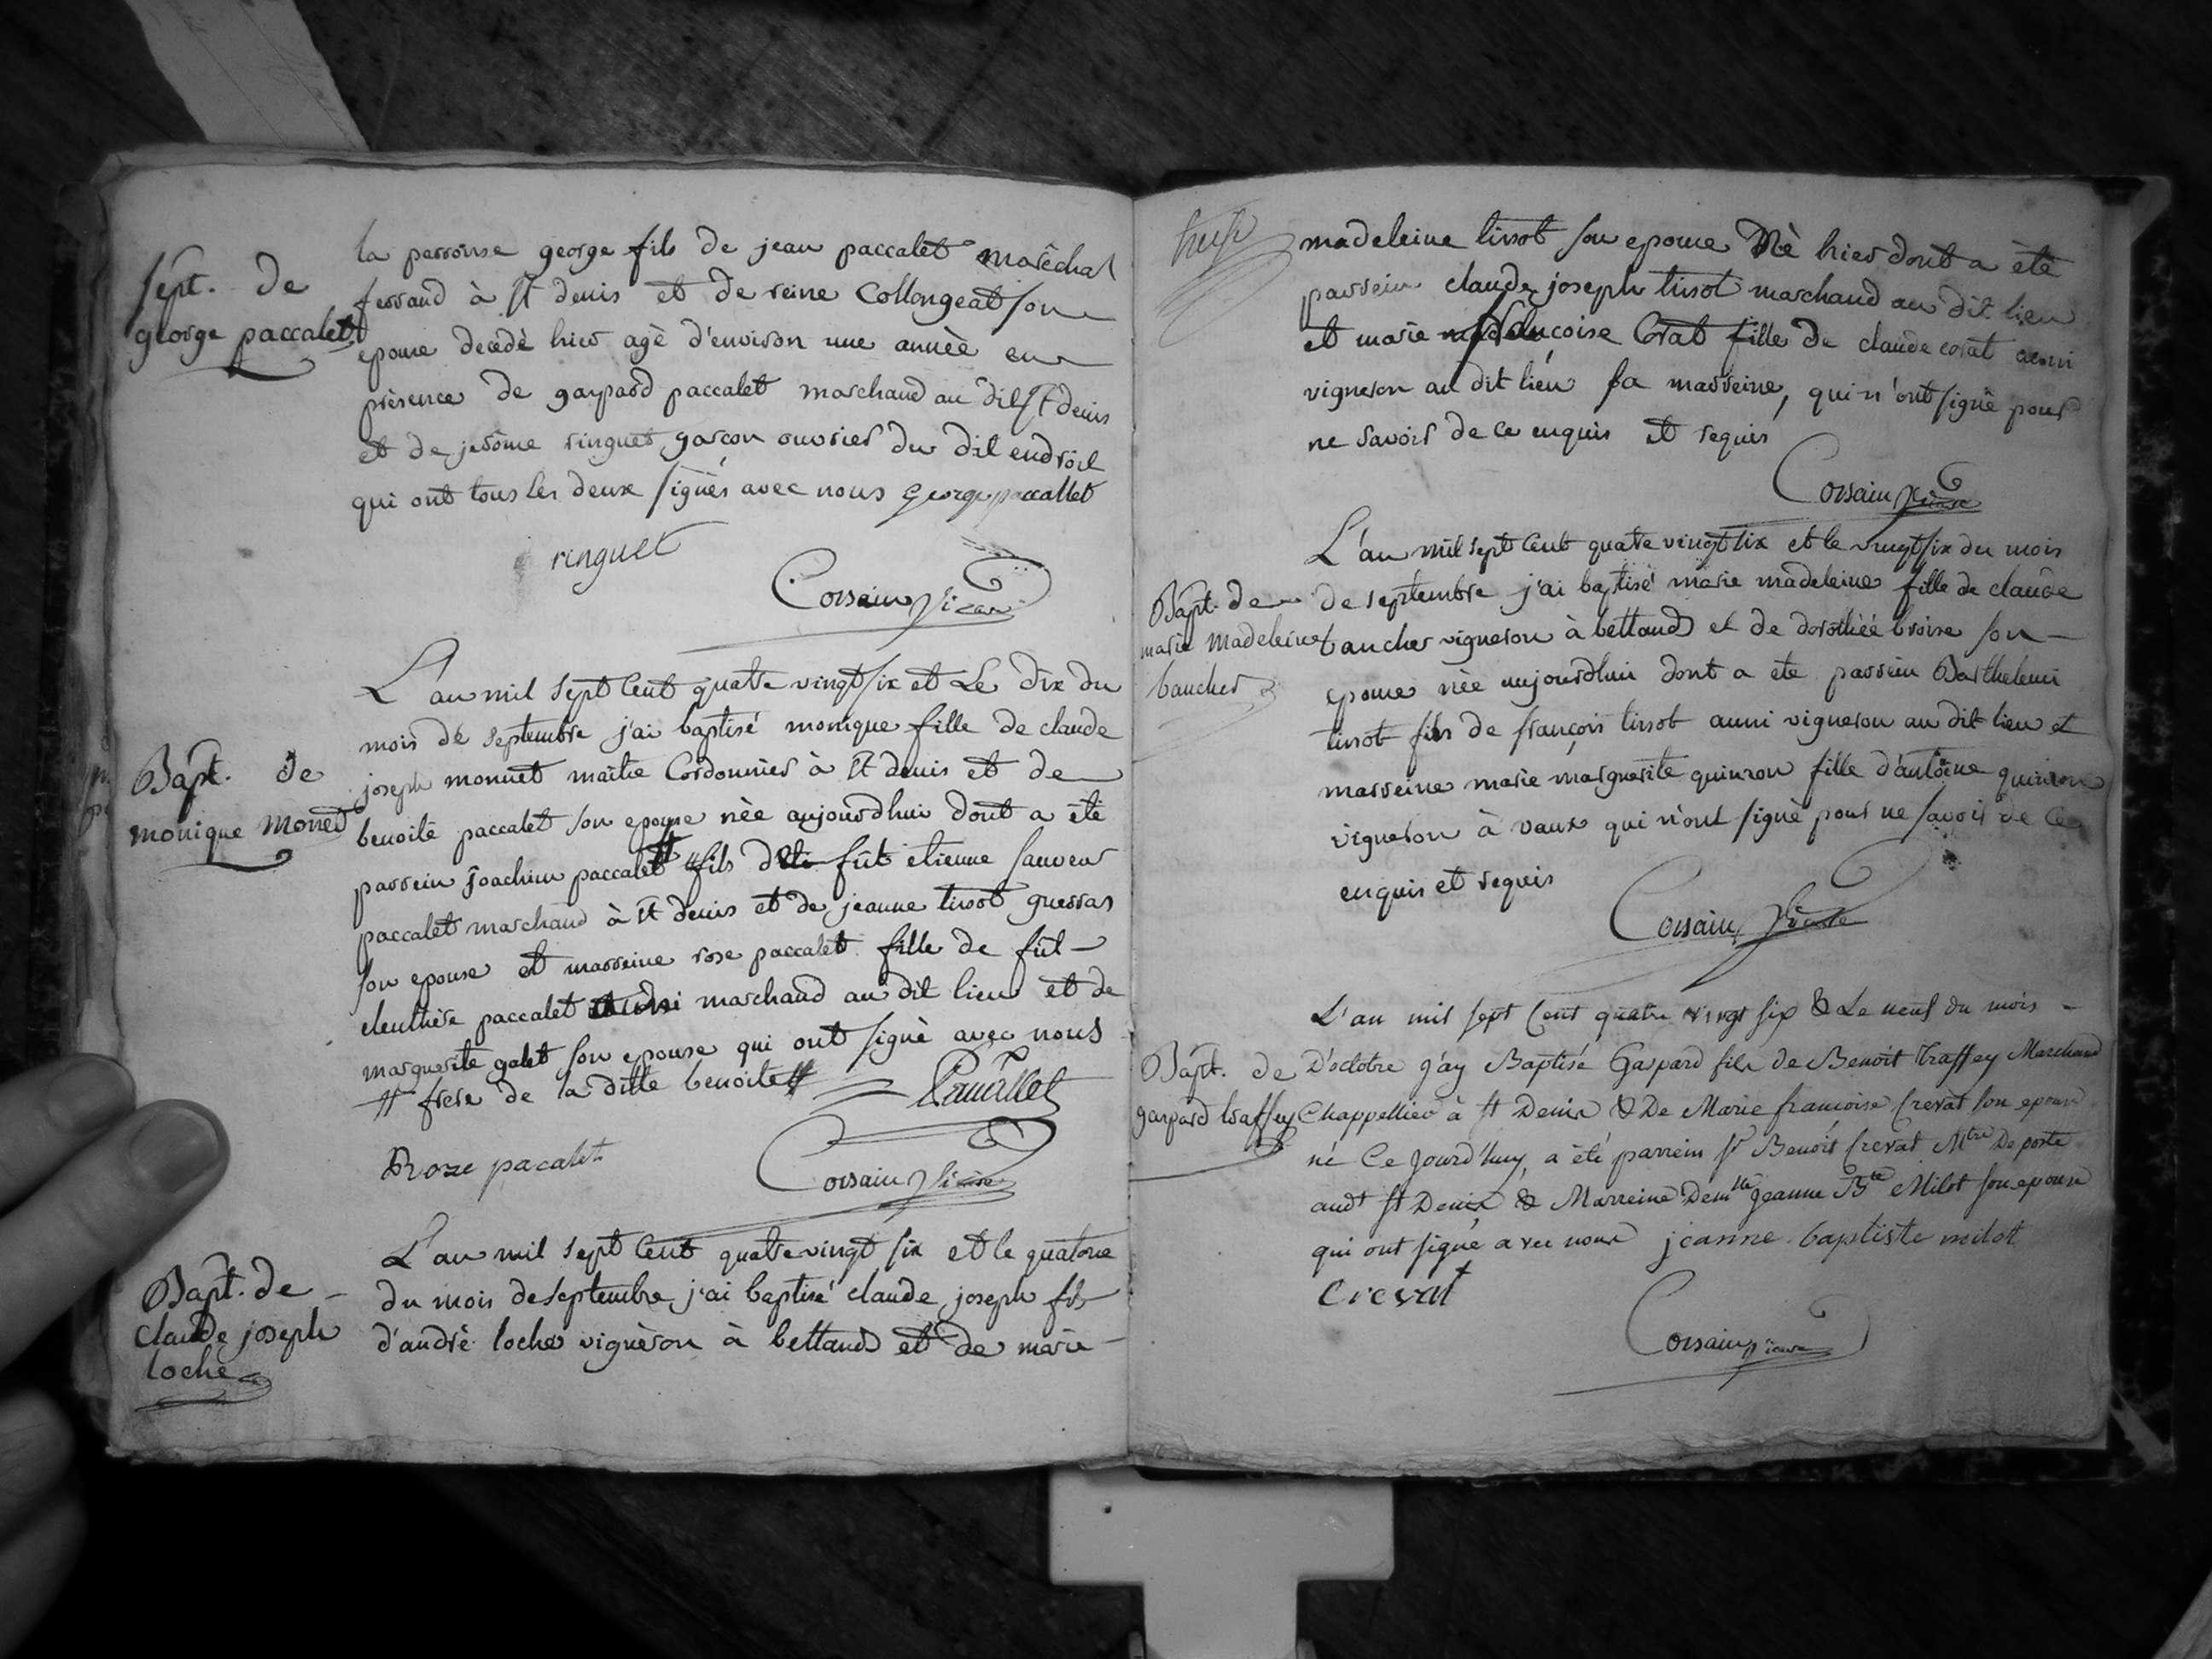 Sept. de
george paccalet
la parroisse george fils de jean paccalet marêchal
ferrand à St denis et de reine Collongeat son
epouse decedè hier agè d'environ une annèe en
prèsence de gaspard paccalet marchand au dit St denis
et de jerôme ringuet garcon ouvrier du dit endroit
qui ont tous les deux signés avec nous George paccallet
ringuet
Corsain vicaire
Bapt. de
monique Monet
L'an mil sept Cent quatre vingt six et Le dix du
mois de septembre j'ai baptisé monique fille de claude
joseph monnet maitre Cordonnier à St denis et de
benoite paccalet son epouse nèe aujourdhui dont a èté
parrein joachim paccalet # fils de fût etienne sauveur
paccalet marchand à St denis et de jeanne tissot guerras
son epouse et marreine rose paccalet fille de fût
eleuthère paccalet aussi marchand au dit lieu et de
marguerite galet son epouse qui ont signè avec nous
# frere de la ditte benoite #
Roze pacalet
Corsain vicaire
Bapt. de
Claude joseph
loche
L'an mil sept Cent quatre vingt six et le quatorze
du mois de septembre j'ai baptisé claude joseph fils
d'andrè loche vignèron à bettand et de marie
madeleine tissot son epouse Nè hier dont a ètè
parrein claude joseph tissot marchand au dit lieu
et marie Corat fille de claude corat aussi
vigneron au dit lieu sa marreine, qui n'ont signè pour
ne savoir de ce enquis et requis
Corsain vicaire
Bapt. de
marie madeleine
baucher
L'an mil sept Cent quatre vingt six et le vingt six du mois
de septembre j'ai baptisé marie madeleine fille de claude
baucher vigneron à bettand et de dorothéé broise son
epouse nèe aujourdhui dont a ete parrein Barthelemi
tissot fils de françois tissot aussi vigneron au dit lieu et
marreine marie marguerite quinson fille d'antoine quinson
vigneron à vaux qui n'ont signè pour ne savoir de ce
enquis et requis
Corsain vicaire
Bapt. de
gaspard traffey
L'an mil sept Cent quatre vingt six & Le neuf du mois
D'octobre J'ay Baptisé Gaspard fils de Benoit Traffey Marchand
Chappellier à St Denis & De Marie françoise Crevat son epouse
né Ce Jourd'huy, a été parrein Sr Benoit Crevat Mtre De poste
audt St Denis & Marreine Demlle Jeanne Bte Milot son epouse
qui ont signé avec nous jeanne baptiste milot
Crevat
Corsain vicaire